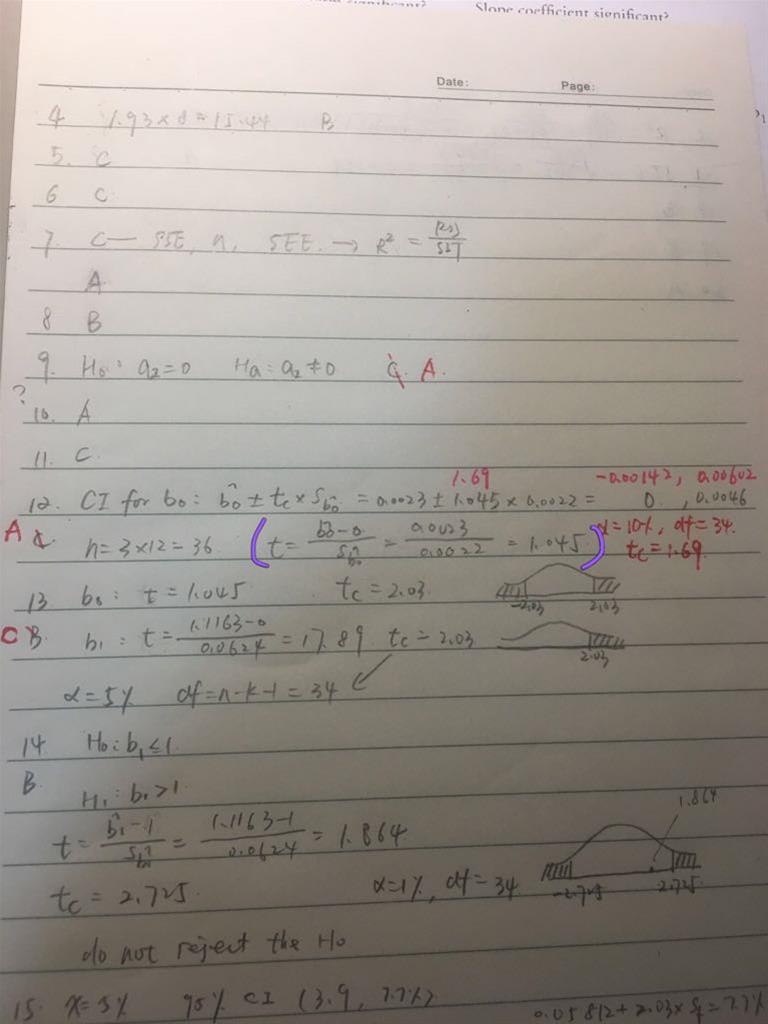 Slope coefficient significant?
Date: Page:
4 1.93 × 8 = 15.44 B
5. C
6 C
7. C — SSE, n, SEE. → R² = /SST
A
8 B
9. H₀: a₂=0 Ha: a₂≠0 A.
?
10. A
11. C.
1.69 -0.00142, 0.00602
12. CI for b₀: b̂₀ ± tc × Sb̂₀ = 0.0023 ± 1.045 × 0.0022 = 0 , 0.0046
A n = 3×12 = 36 ( t = b̂₀-0/Sb̂₀ = 0.0023/0.0022 = 1.045 ) α=10%, df=34.
tc=1.69
13 b₀: t = 1.045 tc = 2.03. -2.03 2.03
C B. b₁: t = 1.1163-0/0.0624 = 17.89. tc = 2.03 2.03
α=5% df=n-k-1=34
14 H₀: b₁ ≤ 1.
B. H₁: b₁ > 1.
1.864
t = b̂₁-1/Sb̂₁ = 1.1163-1/0.0624 = 1.864.
tc = 2.725. α=1%, df=34. -2.725 2.725
do not reject the H₀
15. X=5% 95% CI (3.9, 7.7%) 0.05812 + 2.03 × Sf = 7.7%